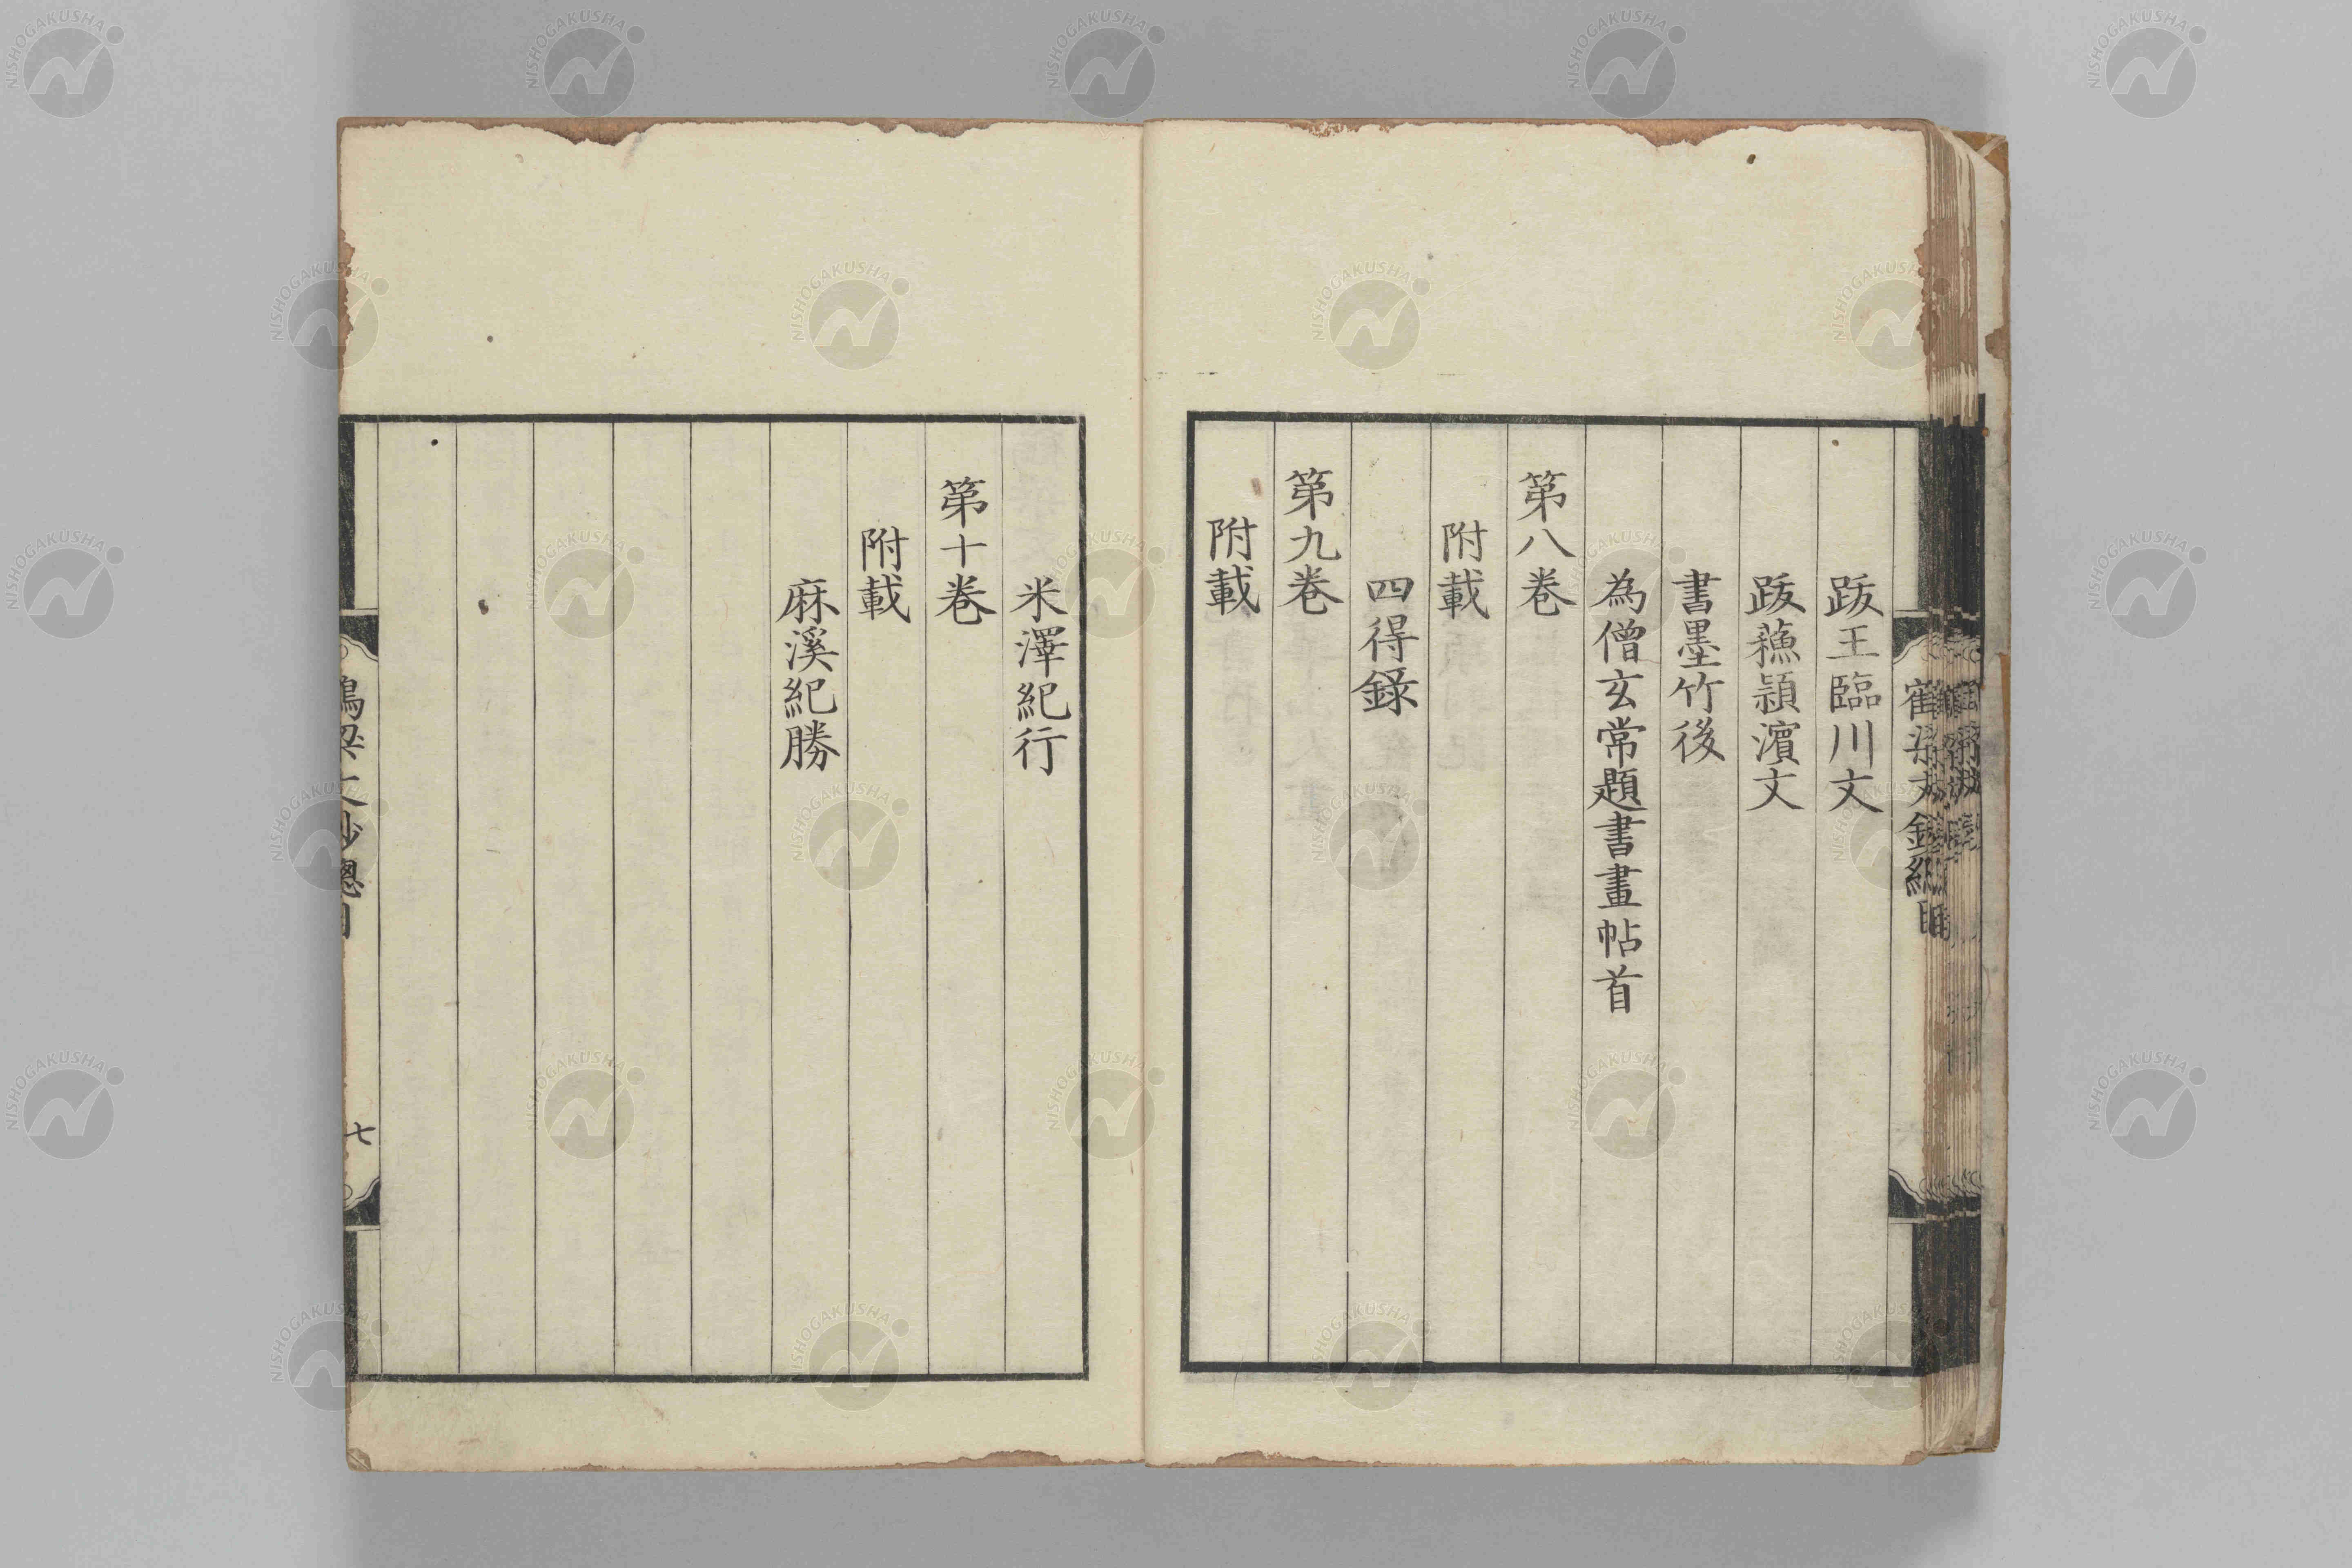 跋王臨川文
跋蘓頴濵文
書墨竹後
為僧玄常題書畫帖首
第八巻
附載
四得録
第九巻
附載
米澤紀行
第十巻
附載
麻溪紀勝
七
NISHOGAKUSHA